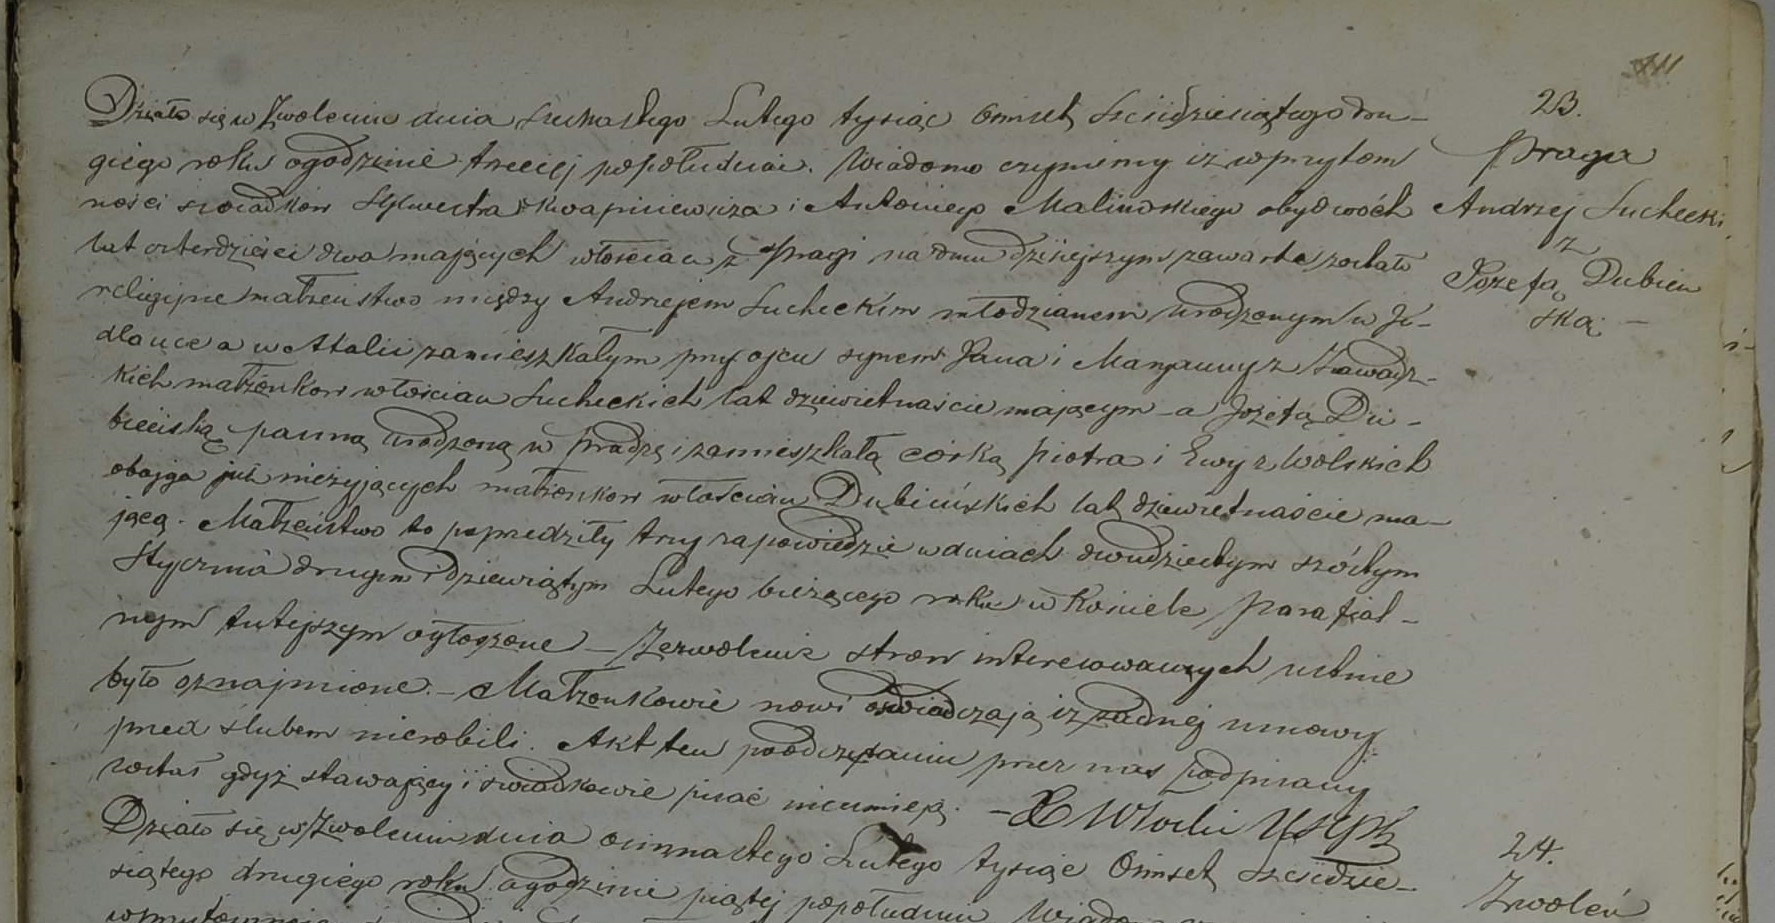 Działo się w Zwoleniu dnia szesnastego Lutego tysiąc ośmset sześćdziesiątego dru-
giego roku o godzinie trzeciej popołudniu. Wiadomo czyniemy iż w przytom
ności świadków Sylwestra Kwapiniewicza i Antoniego Malinoskiego obydwóch
lat czterdzieści dwa mających włościan z Pragi na dniu dzisiejszym zawarte zostało
religijne małżeństwo między Andrzejem Sucheckim młodzianem urodzonym w Je-
dlance a w Atalii zamieszkałym przy ojcu synem Jana i Maryanny z Zawadz-
kich małżonków włościan Sucheckich lat dziewietnaście mającym – a Józefą Du-
bieńską panną urodzoną w Pradze i zamieszkałą córką Piotra i Ewy z Wolskich
obojga już nieżyjących małżonków włościan Dubieńskich lat dziewietnaście ma-
jącą. Małżeństwo to poprzedziły trzy zapowiedzie w dniach dwudziestym szóstym
Stycznia drugim i dziewiątym Lutego bieżącego roku w Kościele Parafial-
nym tutejszym ogłoszone – Zezwolenie stron interesowanych ustnie
było oznajmione. – Małżonkowie nowi oświadczają iż żadnej umowy
przed ślubem nierobili. Akt ten po odczytaniu przez nas podpisany
został gdyż stawający i świadkowie pisać nieumieją. – X Włocki
23.
Praga
Andrzej Suchecki
z
Józefą Dubień
ską –
Działo się w Zwoleniu dnia ośmnastego Lutego tysiąc Ośmset Sześćdzie-
siątego drugiego roku o godzinie piątej popołudniu Wiadomo
24.
Zwoleń